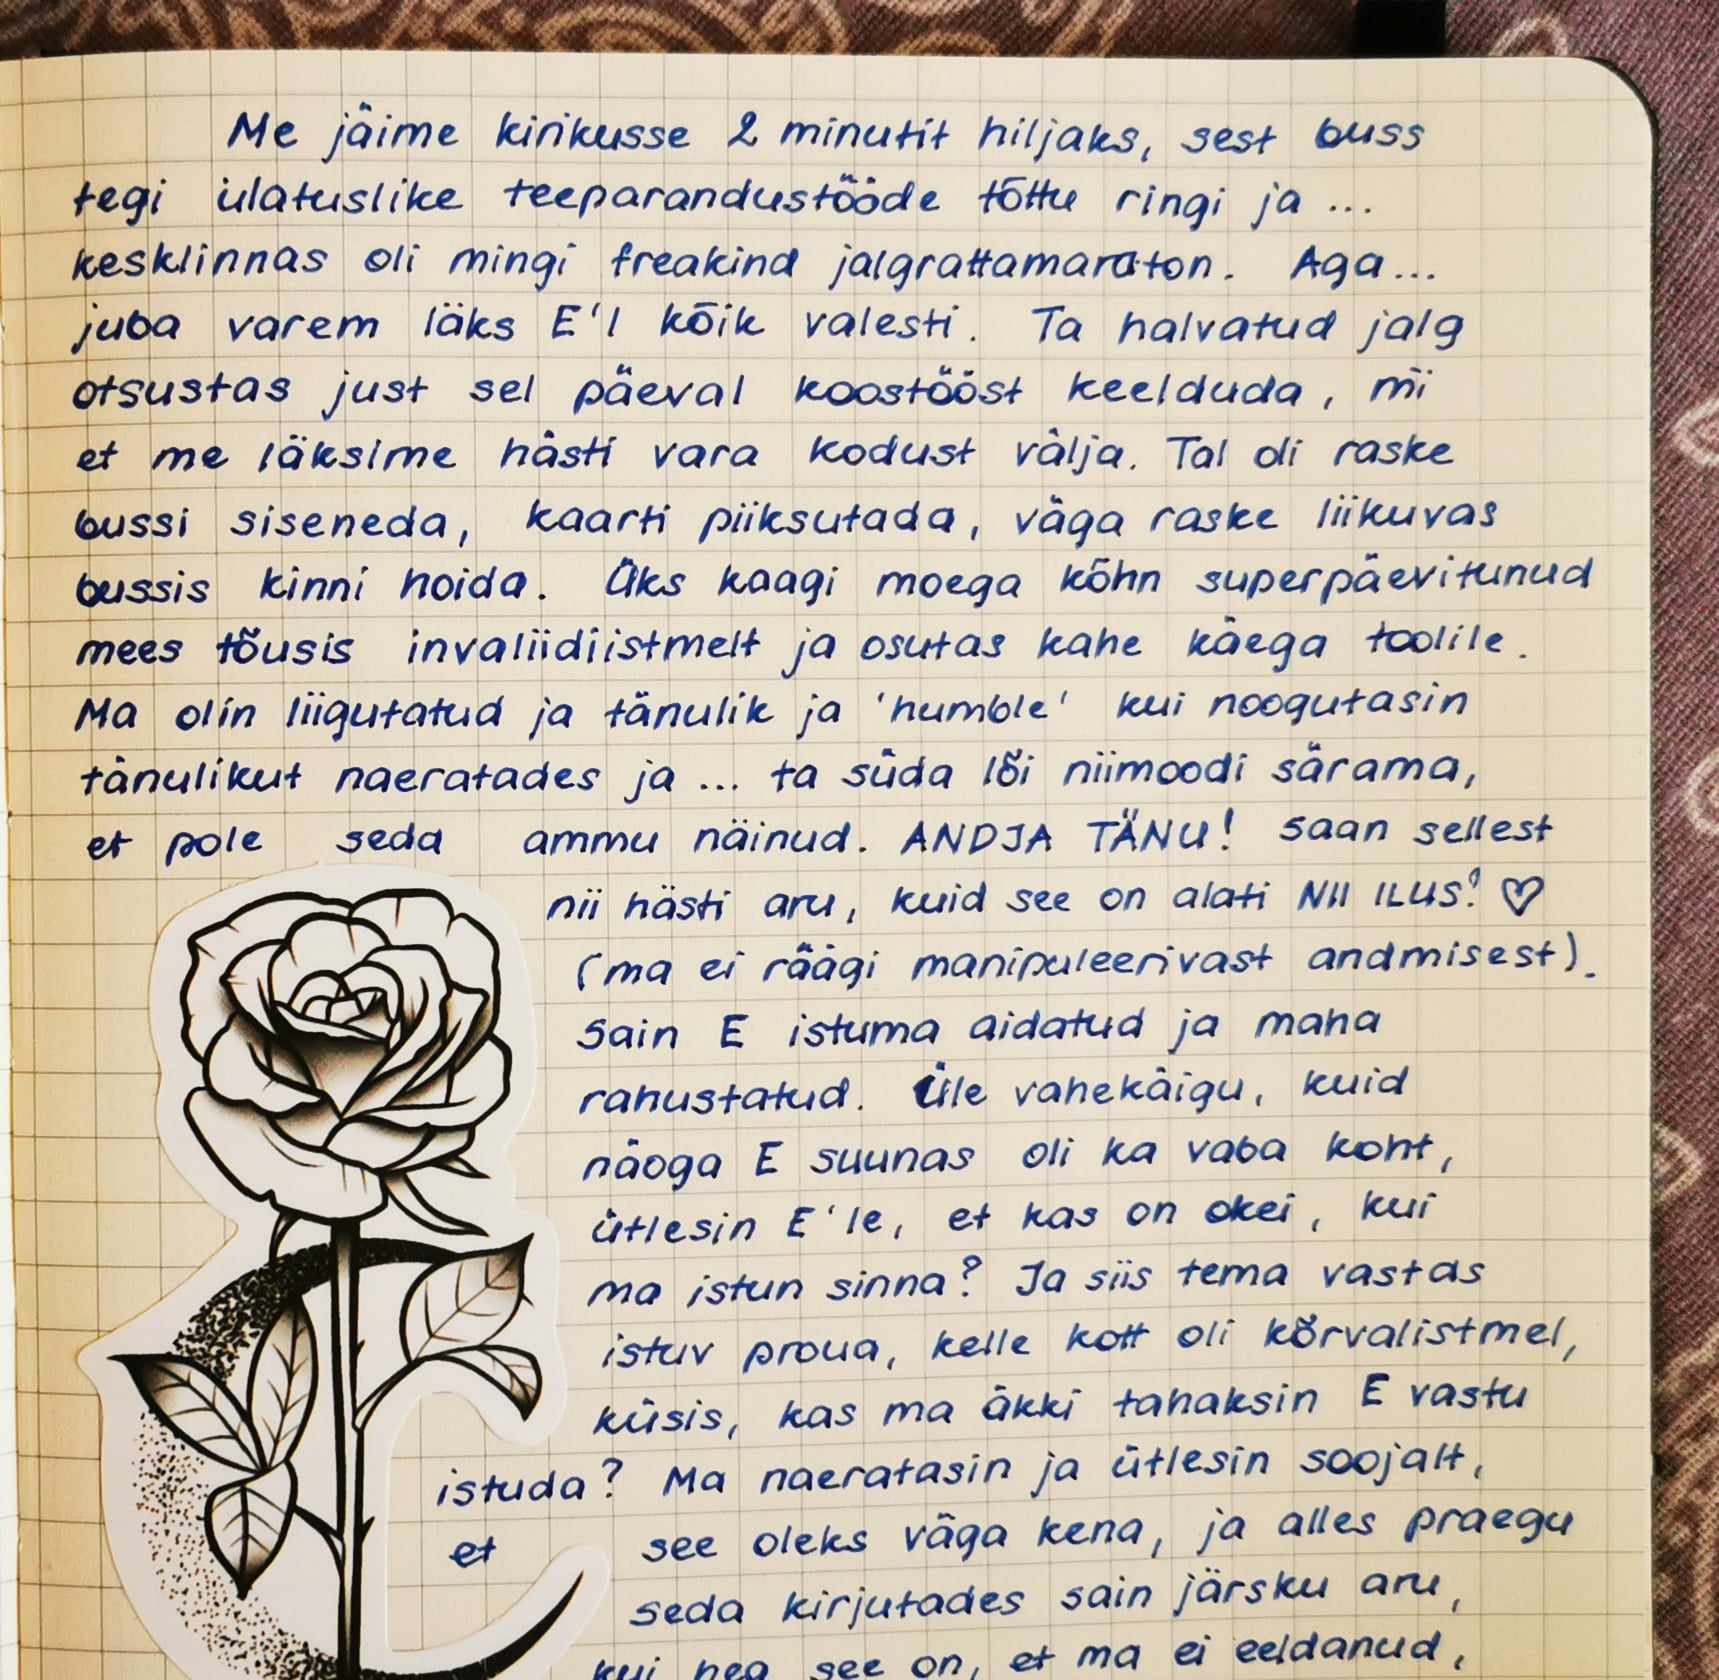 Me jäime kirikusse 2 minutit hiljaks, sest buss
tegi ulatuslike teeparandustööde tõttu ringi ja ...
kesklinnas oli mingi freakind jalgrattamaraton. Aga...
juba varem läks E'l kõik valesti. Ta halvatud jalg
otsustas just sel päeval koostööst keelduda, nii
et me läksime hästi vara kodust välja. Tal oli raske
bussi siseneda, kaarti piiksutada, väga raske liikuvas
bussis kinni hoida. Üks kaagi moega kõhn superpäevitunud
mees tõusis invaliidiistmelt ja osutas kahe käega toolile.
Ma olin liigutatud ja tänulik ja 'humble' kui noogutasin
tänulikut naeratades ja ... ta süda lõi niimoodi särama,
et pole seda ammu näinud. ANDJA TÄNU! Saan sellest
nii hästi aru, kuid see on alati NII ILUS! ♡
(ma ei räägi manipuleerivast andmisest).
Sain E istuma aidatud ja maha
rahustatud. Üle vahekäigu, kuid
näoga E suunas oli ka vaba koht,
ütlesin E'le, et kas on okei, kui
ma istun sinna? Ja siis tema vastas
istuv proua, kelle kott oli kõrvalistmel,
küsis, kas ma äkki tahaksin E vastu
istuda? Ma naeratasin ja ütlesin soojalt,
et see oleks väga kena, ja alles praegu
seda kirjutades sain järsku aru,
kui hea see on, et ma ei eeldanud,